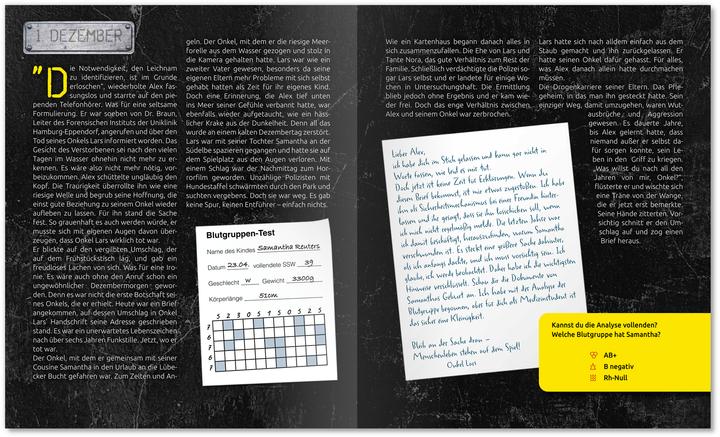 1 DEZEMBER
"Die Notwendigkeit, den Leichnam
zu identifizieren, ist im Grunde
erloschen", wiederholte Alex fas-
sungslos und starrte auf den pie-
penden Telefonhörer. Was für eine seltsame
Formulierung. Er war soeben von Dr. Braun,
Leiter des Forensischen Instituts der Uniklinik
Hamburg-Eppendorf, angerufen und über den
Tod seines Onkels Lars informiert worden. Das
Gesicht des Verstorbenen sei nach den vielen
Tagen im Wasser ohnehin nicht mehr zu er-
kennen. Es wäre also nicht mehr nötig, vor-
beizukommen. Alex schüttelte ungläubig den
Kopf. Die Traurigkeit überrollte ihn wie eine
riesige Welle und begrub seine Hoffnung, die
einst gute Beziehung zu seinem Onkel wieder
aufleben zu lassen. Für ihn stand die Sache
fest. So grauenhaft es auch werden würde, er
musste sich mit eigenen Augen davon über-
zeugen, dass Onkel Lars wirklich tot war.
Er blickte auf den vergilbten Umschlag, der
auf dem Frühstückstisch lag, und gab ein
freudloses Lachen von sich. Was für eine Iro-
nie. Es wäre auch ohne den Anruf schon ein
ungewöhnlicher Dezembermorgen gewor-
den. Denn es war nicht die erste Botschaft sei-
nes Onkels, die er erhielt. Heute war ein Brief
angekommen, auf dessen Umschlag in Onkel
Lars' Handschrift seine Adresse geschrieben
stand. Es war ein unerwartetes Lebenszeichen,
nach über sechs Jahren Funkstille. Jetzt, wo er
tot war.
Der Onkel, mit dem er gemeinsam mit seiner
Cousine Samantha in den Urlaub an die Lübe-
cker Bucht gefahren war. Zum Zelten und An-
geln. Der Onkel, mit dem er die riesige Meer-
forelle aus dem Wasser gezogen und stolz in
die Kamera gehalten hatte. Lars war wie ein
zweiter Vater gewesen, besonders da seine
eigenen Eltern mehr Probleme mit sich selbst
gehabt hatten als Zeit für ihr eigenes Kind.
Doch eine Erinnerung, die Alex tief unten
ins Meer seiner Gefühle verbannt hatte, war
ebenfalls wieder aufgetaucht, wie ein häss-
licher Krake aus der Dunkelheit. Denn all das
wurde an einem kalten Dezembertag zerstört.
Lars war mit seiner Tochter Samantha an der
Südelbe spazieren gegangen und hatte sie auf
dem Spielplatz aus den Augen verloren. Mit
einem Schlag war der Nachmittag zum Hor-
rorfilm geworden. Unzählige Polizisten mit
Hundestaffel schwärmten durch den Park und
suchten vergebens. Doch sie war weg. Es gab
keine Spur, keinen Entführer – einfach nichts.
Blutgruppen-Test
Name des Kindes Samantha Reuters
Datum 23.04. vollendete SSW 39
Geschlecht w Gewicht 3300g
Körperlänge 51cm
Wie ein Kartenhaus begann danach alles in
sich zusammenzufallen. Die Ehe von Lars und
Tante Nora, das gute Verhältnis zum Rest der
Familie. Schließlich verdächtigte die Polizei so-
gar Lars selbst und er landete für einige Wo-
chen in Untersuchungshaft. Die Ermittlung
blieb jedoch ohne Ergebnis und er kam wie-
der frei. Doch das enge Verhältnis zwischen
Alex und seinem Onkel war zerbrochen.
Lars hatte sich nach alldem einfach aus dem
Staub gemacht und ihn zurückgelassen. Er
hatte seinen Onkel dafür gehasst. Für alles,
was Alex danach allein hatte durchmachen
müssen.
Die Drogenkarriere seiner Eltern. Das Pfle-
geheim, in das man ihn gesteckt hatte. Sein
einziger Weg, damit umzugehen, waren Wut-
ausbrüche und Aggression
gewesen. Es dauerte Jahre,
bis Alex gelernt hatte, dass
niemand außer er selbst da-
für sorgen konnte, sein Le-
ben in den Griff zu kriegen.
„Was willst du nach all den
Jahren von mir, Onkel?",
flüsterte er und wischte sich
eine Träne von der Wange,
die er jetzt erst bemerkte.
Seine Hände zitterten. Vor-
sichtig schnitt er den Um-
schlag auf und zog einen
Brief heraus.
Lieber Alex,
ich habe dich im Stich gelassen und kann gar nicht in
Worte fassen, wie leid es mir tut.
Doch jetzt ist keine Zeit für Erklärungen. Wenn du
diesen Brief bekommst, ist mir etwas zugestoßen. Ich habe
ihn als Sicherheitsmechanismus bei einer Freundin hinter-
lassen und ihr gesagt, dass sie ihn losschicken soll, wenn
ich mich nicht regelmäßig melde. Die letzten Jahre war
ich damit beschäftigt, herauszufinden, warum Samantha
verschwunden ist. Es steckt viel größere Sache dahinter,
als ich anfangs dachte, und ich muss vorsichtig sein. Ich
glaube, ich werde beobachtet. Daher habe ich die wichtigsten
Hinweise verschlüsselt. Schau dir die Dokumente von
Samanthas Geburt an. Ich habe mit der Analyse der
Blutgruppe begonnen, aber für dich als Medizinstudent ist
das sicher eine Kleinigkeit.
Bleib an der Sache dran –
Menschenleben stehen auf dem Spiel!
Onkel Lars
Kannst du die Analyse vollenden?
Welche Blutgruppe hat Samantha?
AB+
B negativ
Rh-Null